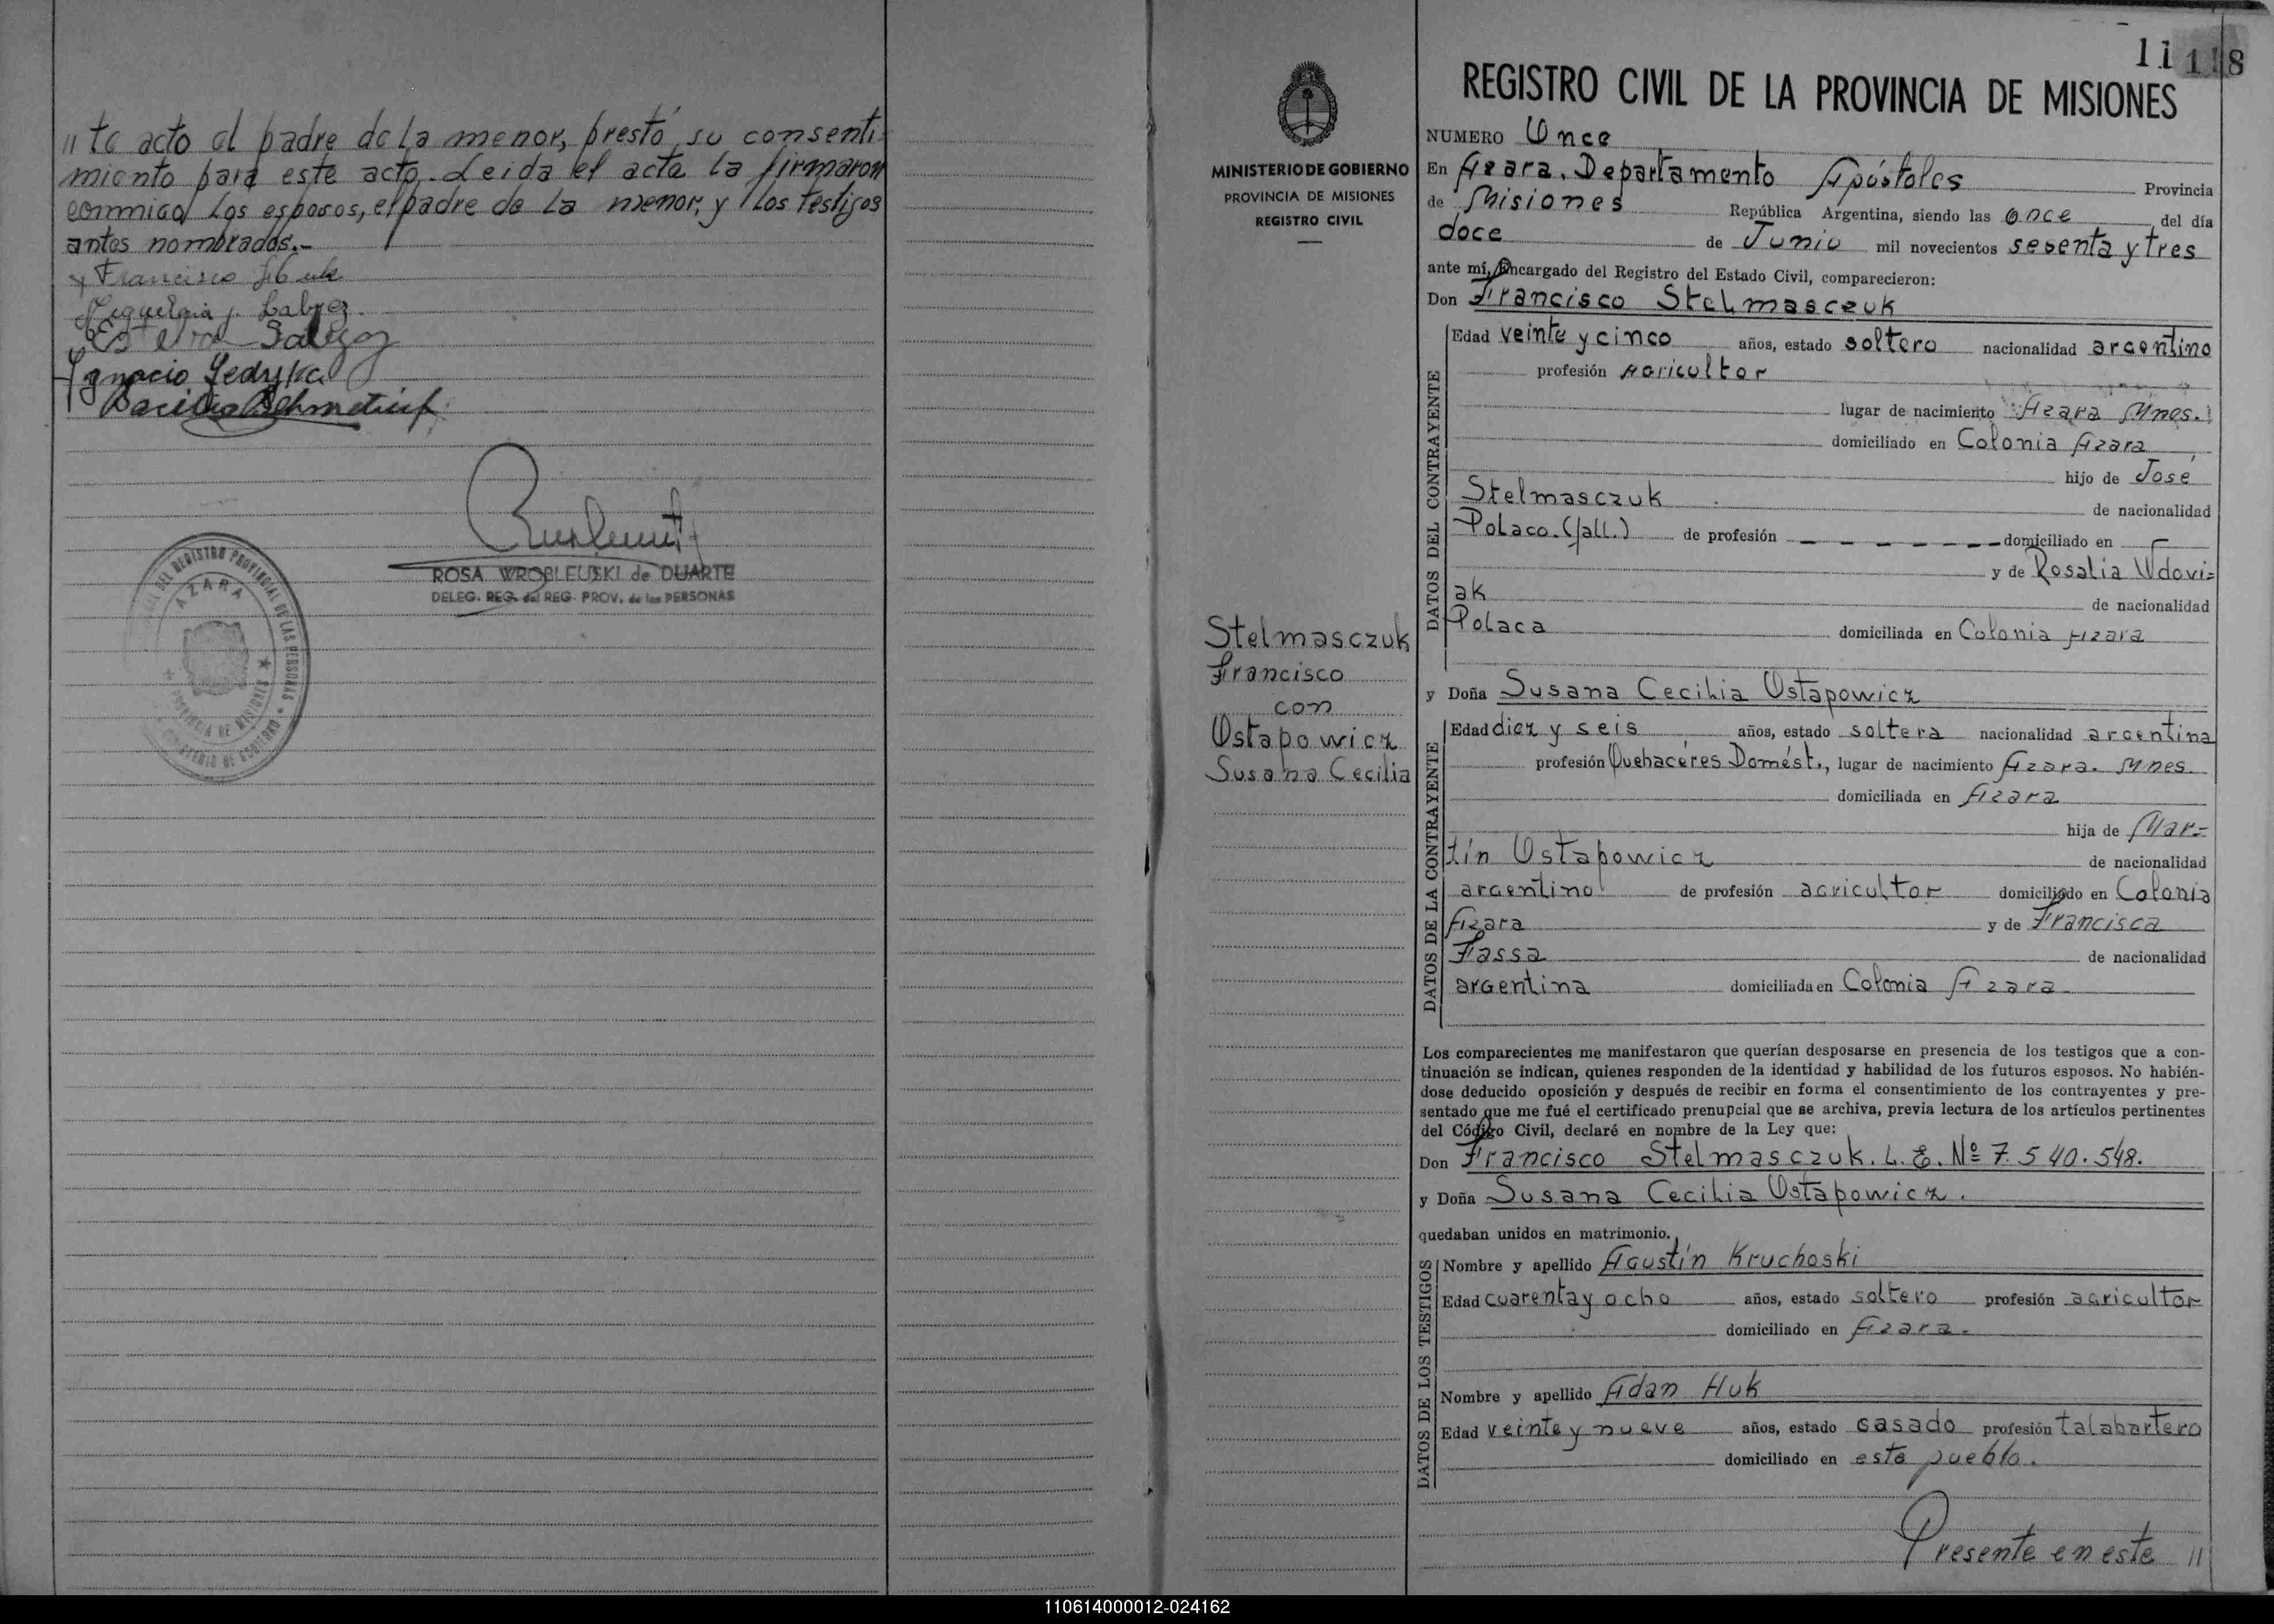 "te acto el padre de la menor, prestó su consenti-
miento para este acto. Leida el acta la firmaron
conmigo los esposos, el padre de la menor, y los testigos
antes nombrados.-
x Francisco
J. Labrez
Ignacio Sedyka
ROSA WROBLEUSKI de DUARTE
DELEG. REG. del REG. PROV. de las PERSONAS
DEL REGISTRO PROVINCIAL DE LAS PERSONAS
AZARA
PROVINCIA DE MISIONES
MINISTERIO DE GOBIERNO
MINISTERIO DE GOBIERNO
PROVINCIA DE MISIONES
REGISTRO CIVIL
Stelmasczuk
Francisco
con
Ostapowicz
Susana Cecilia
11 118
REGISTRO CIVIL DE LA PROVINCIA DE MISIONES
NUMERO Once
En Azara. Departamento Apóstoles Provincia
de Misiones República Argentina, siendo las once del día
doce de Junio mil novecientos sesenta y tres
ante mí, Encargado del Registro del Estado Civil, comparecieron:
Don Francisco Stelmasczuk
DATOS DEL CONTRAYENTE
Edad veinte y cinco años, estado soltero nacionalidad argentino
profesión agricultor
lugar de nacimiento Azara Mnes.
domiciliado en Colonia Azara
hijo de José
Stelmasczuk de nacionalidad
Polaco.(fall.) de profesión - - - - - - domiciliado en
y de Rosalia Wdovi=
ak de nacionalidad
Polaca domiciliada en Colonia Azara
y Doña Susana Cecilia Ostapowicz
DATOS DE LA CONTRAYENTE
Edad diez y seis años, estado soltera nacionalidad argentina
profesión Quehaceres Domést., lugar de nacimiento Azara. Mnes.
domiciliada en Azara
hija de Mar=
tín Ostapowicz de nacionalidad
argentino de profesión agricultor domiciliado en Colonia
Azara y de Francisca
Fassa de nacionalidad
argentina domiciliada en Colonia Azara
Los comparecientes me manifestaron que querían desposarse en presencia de los testigos que a con-
tinuación se indican, quienes responden de la identidad y habilidad de los futuros esposos. No habién-
dose deducido oposición y después de recibir en forma el consentimiento de los contrayentes y pre-
sentado que me fué el certificado prenupcial que se archiva, previa lectura de los artículos pertinentes
del Código Civil, declaré en nombre de la Ley que:
Don Francisco Stelmasczuk. L. E. Nº 7.540.548.
y Doña Susana Cecilia Ostapowicz.
quedaban unidos en matrimonio.
DATOS DE LOS TESTIGOS
Nombre y apellido Agustín Kruchoski
Edad cuarenta y ocho años, estado soltero profesión agricultor
domiciliado en Azara.
Nombre y apellido Adan Huk
Edad veinte y nueve años, estado casado profesión talabartero
domiciliado en este pueblo.
Presente en este "
110614000012-024162